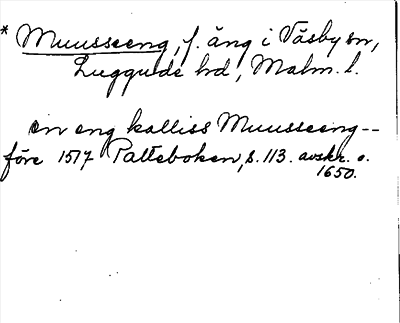 * Muusseeng, f. äng i Väsby sn,
Luggude hd, Malm. l.
en eng kalliss Muusseeng--
före 1517 Patteboken, s. 113. avskr. o.
1650.